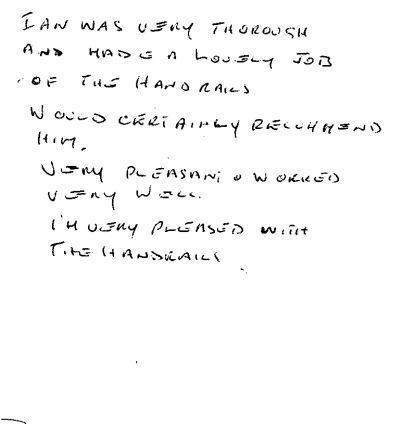 IAN WAS VERY THOROUGH
AND MADE A LOVELY JOB
OF THE HANDRAILS
WOULD CERTAINLY RECOMMEND
HIM.
VERY PLEASANT & WORKED
VERY WELL.
I'M VERY PLEASED WITH
THE HANDRAILS